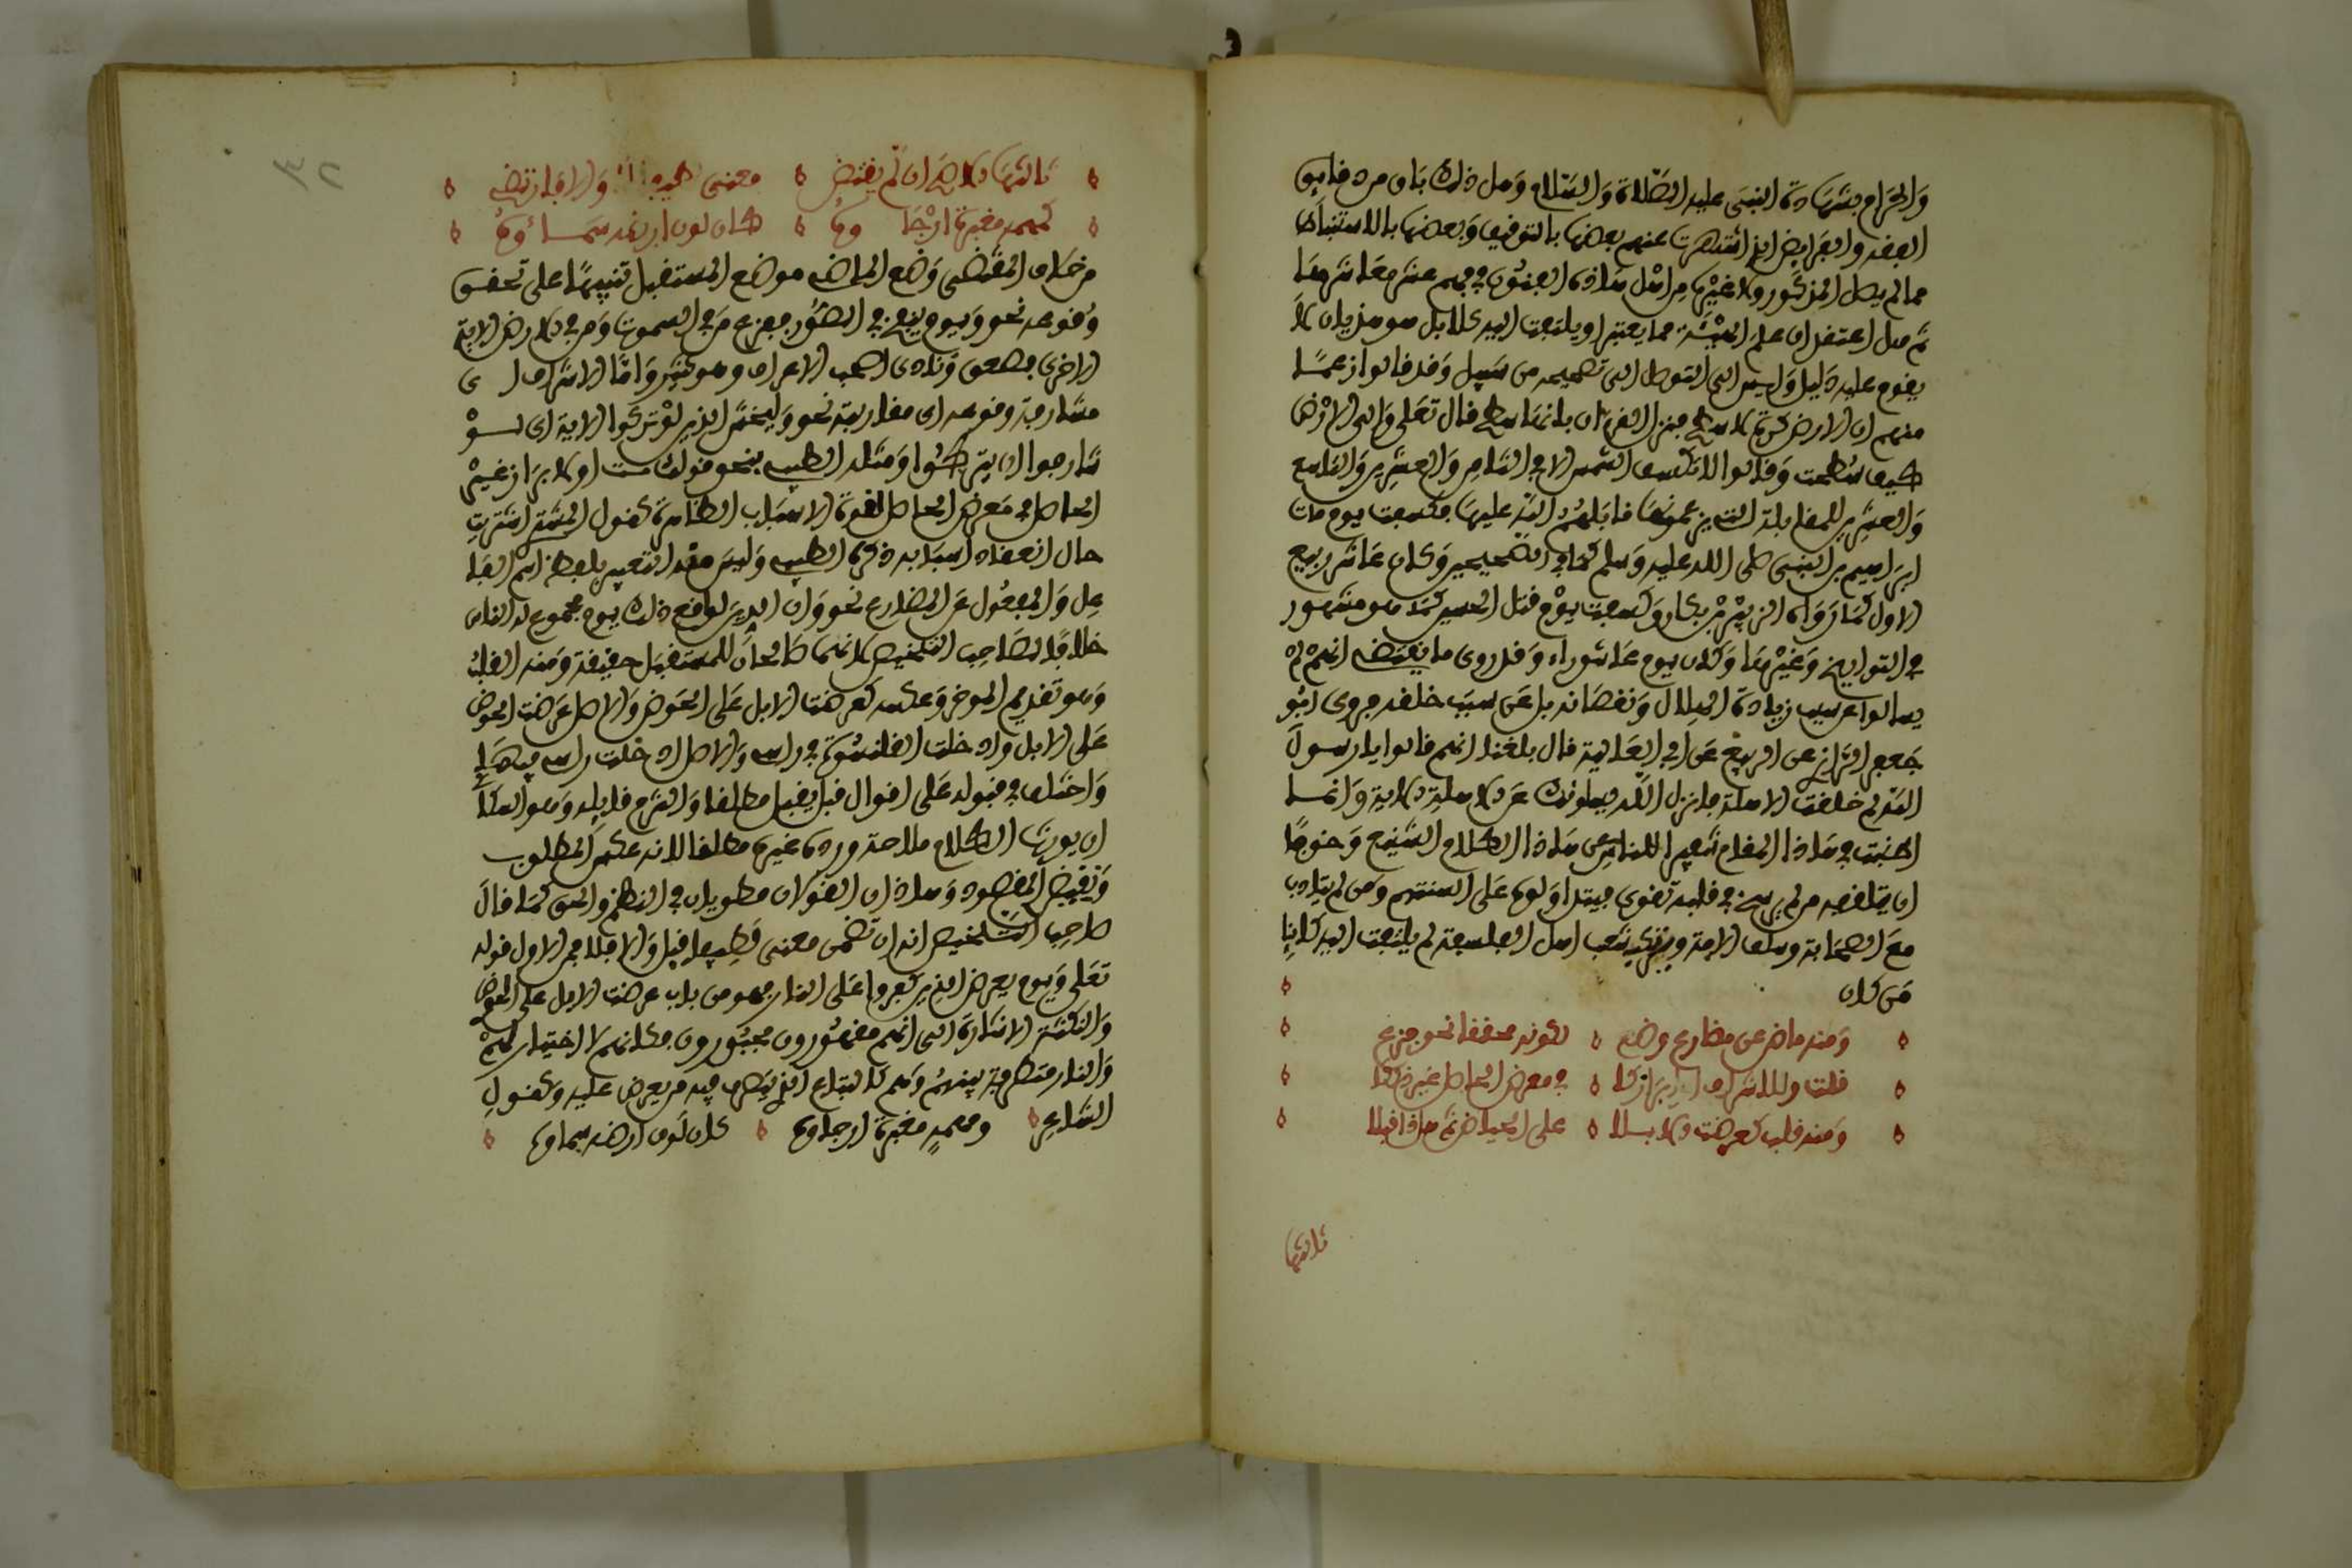 والحرام بشهادة النبي عليه الصلاة والسلام ومل ذلك بان مرد فايق
الفقه والفرايض الذي اشتهرت عنهم بعضها بالتوقيف وبعضها بالاستنباط
مما لم يصل المذكور ولا غيره من اهل هاذه الفنون في فهم عشر معاشرها
ثم هل اعتقد ان علم الهيئة مما يعتبر او يلتفت اليه كلا بل هو هذيان لا
يقوم عليه دليل وليس الى التوصل الى تصحيحه من سبيل وقد قالوا زعما
منهم ان الارض كرة لا سطح فنزل القرءان بانها سطح قال تعلى والى الارض
كيف سطحت وقالوا لا تكسف الشمس الا في الثامن والعشرين والتاسع
والعشرين للمقابلة التي يزعمونها قابلهم الله عليها فكسفت يوم مات
ابراهيم بن النبي صلى الله عليه وسلم كما في الصحيحين وكان عاشر ربيع
الاول كما رواه الزبير بن بكار وكسفت يوم قتل الحسين كما هو مشهور
في التواريخ وغيرها وكان يوم عاشوراء وقد روى ما يقتضي انهم لم
يسالوا عن سبب زيادة الهلال ونقصانه بل عن سبب خلقه فروى ابو
جعفر الرازي عن الربيع عن ابي العالية قال بلغنا انهم قالوا يا رسول
الله لم خلقت الاهلة فانزل الله يسلونك عن الاهلة الاية وانما
اطنبت في هاذا المقام تنفيرا للناس عن هاذا الكلام الشنيع وخوفا
ان يتلقفه من لم يرسخ في قلبه تقوى فيتداولوه على السنتهم ومن لم يتادب
مع الصحابة وسلف الامة ويترك شعب اهل الفلسفة لم يلتفت اليه كاينا
من كان
ومنه ماض عن مضارع وضع لكونه محققا نحو فزع
قلت وللاشراف او ابرازكا في معرض الحاصل غير ذاكا
ومنه قلب كعرضت الابلا على الحياض ثم هاذا قبلا
ثالثها
ثالثها الاصح ان لم يقتض معنى لطيفا لا والا فارتضي
كمهمه مغبرة ارجاوه كان لون ارضه سماؤه
من خلاف المقتضى وضع الماضي موضع المستقبل تنبيها على تحقق
وقوعه نحو ويوم ينفخ في الصور ففزع من في السموت ومن في الارض الاية
الاخرى فصعق ونادى اصحب الاعراف وهو كثير واما الاشراف اي
مشارفة وقوعه اي مقاربته نحو وليخش الذين لو تركوا الاية اي لو
شارفوا ان يتركوا ومثله الطيب بنحو قولك مت او لابراز غير
الحاصل في معرض الحاصل لقوة الاسباب الظاهرة كقول المشتري اشتريت
حال انعقاد اسبابه ذكره الطيب وليس منه التعبير بلفظ اسم الفا
عل والمفعول عن المضارع نحو وان الدين لواقع ذلك يوم مجموع له الناس
خلافا لصاحب التلخيص لانهما صالحان للمستقبل حقيقة ومنه القلب
وهو تقديم الموخر وعكسه كعرضت الابل على الحوض والاصل عرضت الحوض
على الابل وادخلت القلنسوة في راسي والاصل ادخلت راسي فيها
واختلف في قبوله على اقوال قيل يقبل مطلقا والتزم قايله وهو السكاكي
ان يورث الكلام ملاحة ورده غيره مطلقا لانه عكس المطلوب
ونقيض المقصود وهاذان القولان مطويان في النظم والحق كما قال
صاحب التلخيص انه ان تضمن معنى لطيفا قبل والا فلا فمن الاول قوله
تعلى ويوم يعرض الذين كفروا على النار فهو من باب عرضت الابل على الحوض
والنكتة الاشارة الى انهم مقهورون مجبورون فكانهم لا اختيار لهم
والنار متصرفة فيهم وهم كالمتاع الذي يتصرف فيه من يعرض عليه وكقول
الشاعر ومهمه مغبرة ارجاوه كان لون ارضه سماوه